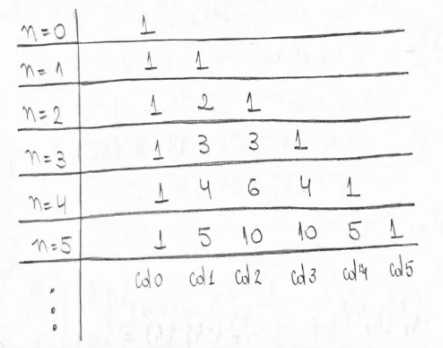 n=0 1
n=1 1 1
n=2 1 2 1
n=3 1 3 3 1
n=4 1 4 6 4 1
n=5 1 5 10 10 5 1
col0 col1 col2 col3 col4 col5